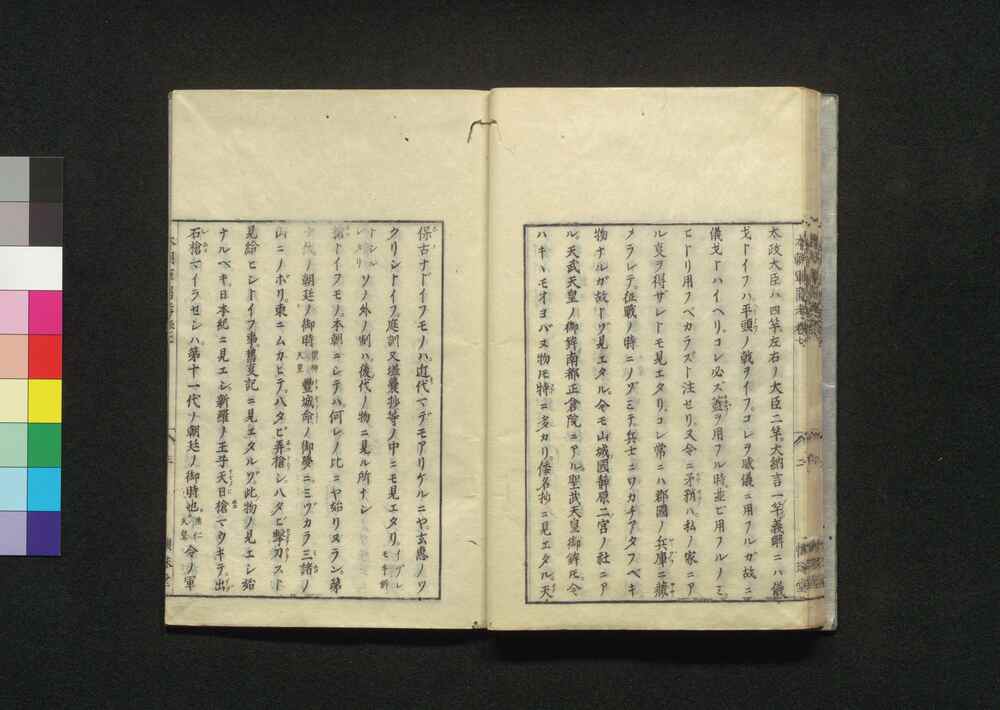 太政大臣ハ四竿左右ノ大臣二竿大納言一竿義解ニハ儀
戈トイフハ平頭ノ戟ヲイフコレヲ威儀ニ用フルガ故ニ
儀戈トハイヘリコレ必ズ蓋ヲ用フル時並ビ用フルノミ
ヒトリ用フベカラズト注セリ又令ニ矛矟ハ私ノ家ニア
ル叓ヲ得ザレトモ見エタリコレ常ニハ郡國ノ兵庫ニ蔵
メラレテ征戰ノ時ニノゾミテ兵士ニワカチアタフベキ
物ナルガ故トゾ見エタル今モ山城國静原二宮ノ社ニア
ル天武天皇ノ御鉾南都正倉院ニアル聖武天皇御鉾氐今
ハキヽモオヨバヌ物氐特ニ多カリ倭名抄ニ見エタル天
保古ナドイフモノハ近代マデモアリケルニヤ玄惠ノツ
クリシトイフ庭訓又壒囊抄等ノ中ニモ見エタリ
ソノ外ノ制ハ後代ノ物ニ見ル所ナシ
槍トイフモノ本朝ニシテハ何レノ比ニヤ始リヌラン第
代ノ朝廷ノ御時 天皇 豊城命ノ御夢ニミヅカラ三諸ノ
山ニノボリ東ニムカヒテ八タビ弄槍シ八タビ擊刀スト
見給ヒシトイフ事舊叓記ニ見エタルゾ此物ノ見エシ始
ナルベキ日本紀ニ見エシ新羅ノ王子天日槍マウキテ出
石槍マイラセシハ第十一代ノ朝廷ノ御時也 垂仁天皇 令ノ軍